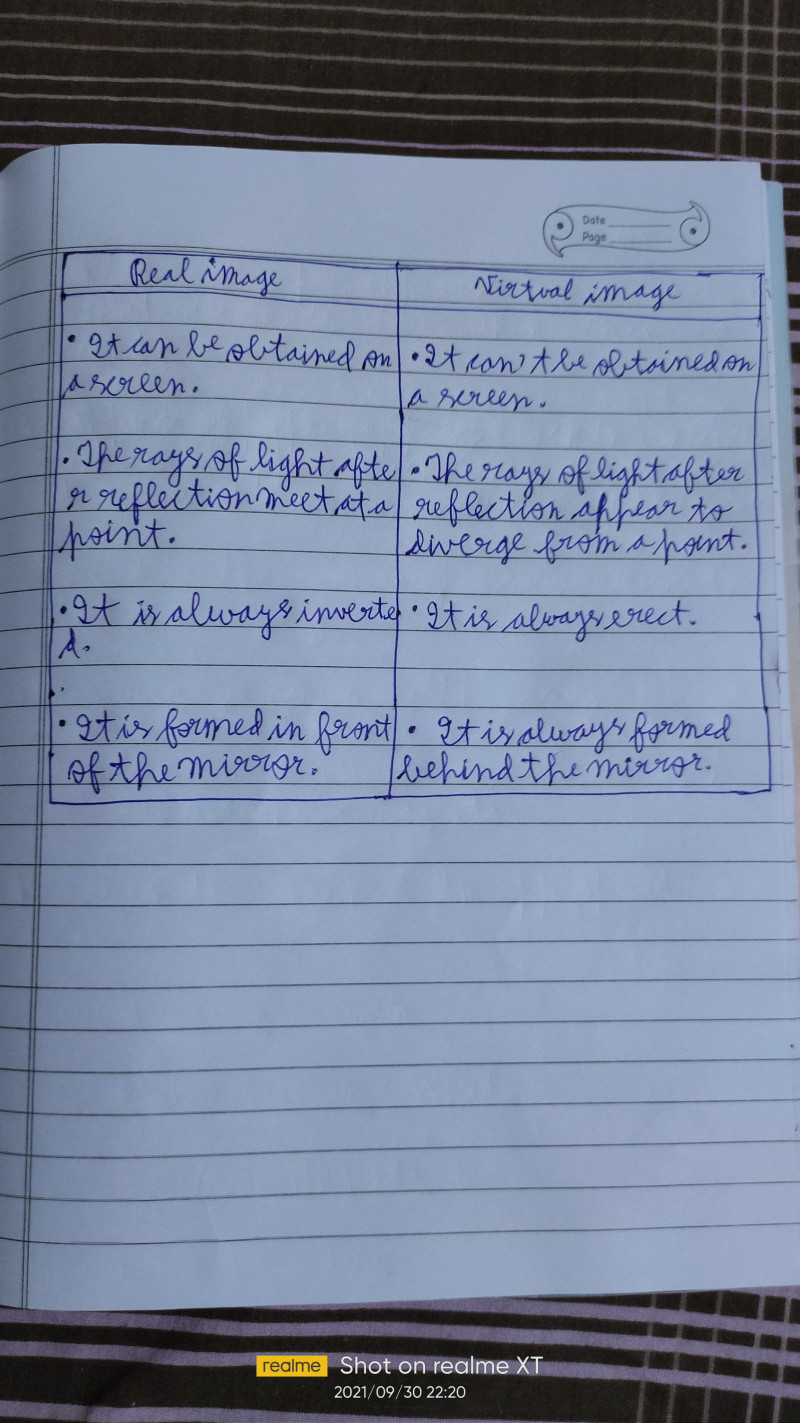 Date
Page
Real image
Virtual image
• It can be obtained on
a screen.
• It can't be obtained on
a screen.
• The rays of light afte
r reflection meet at a
point.
• The rays of light after
reflection appear to
diverge from a point.
• It is always inverte
d.
• It is always erect.
• It is formed in front
of the mirror.
• It is always formed
behind the mirror.
realme Shot on realme XT
2021/09/30 22:20